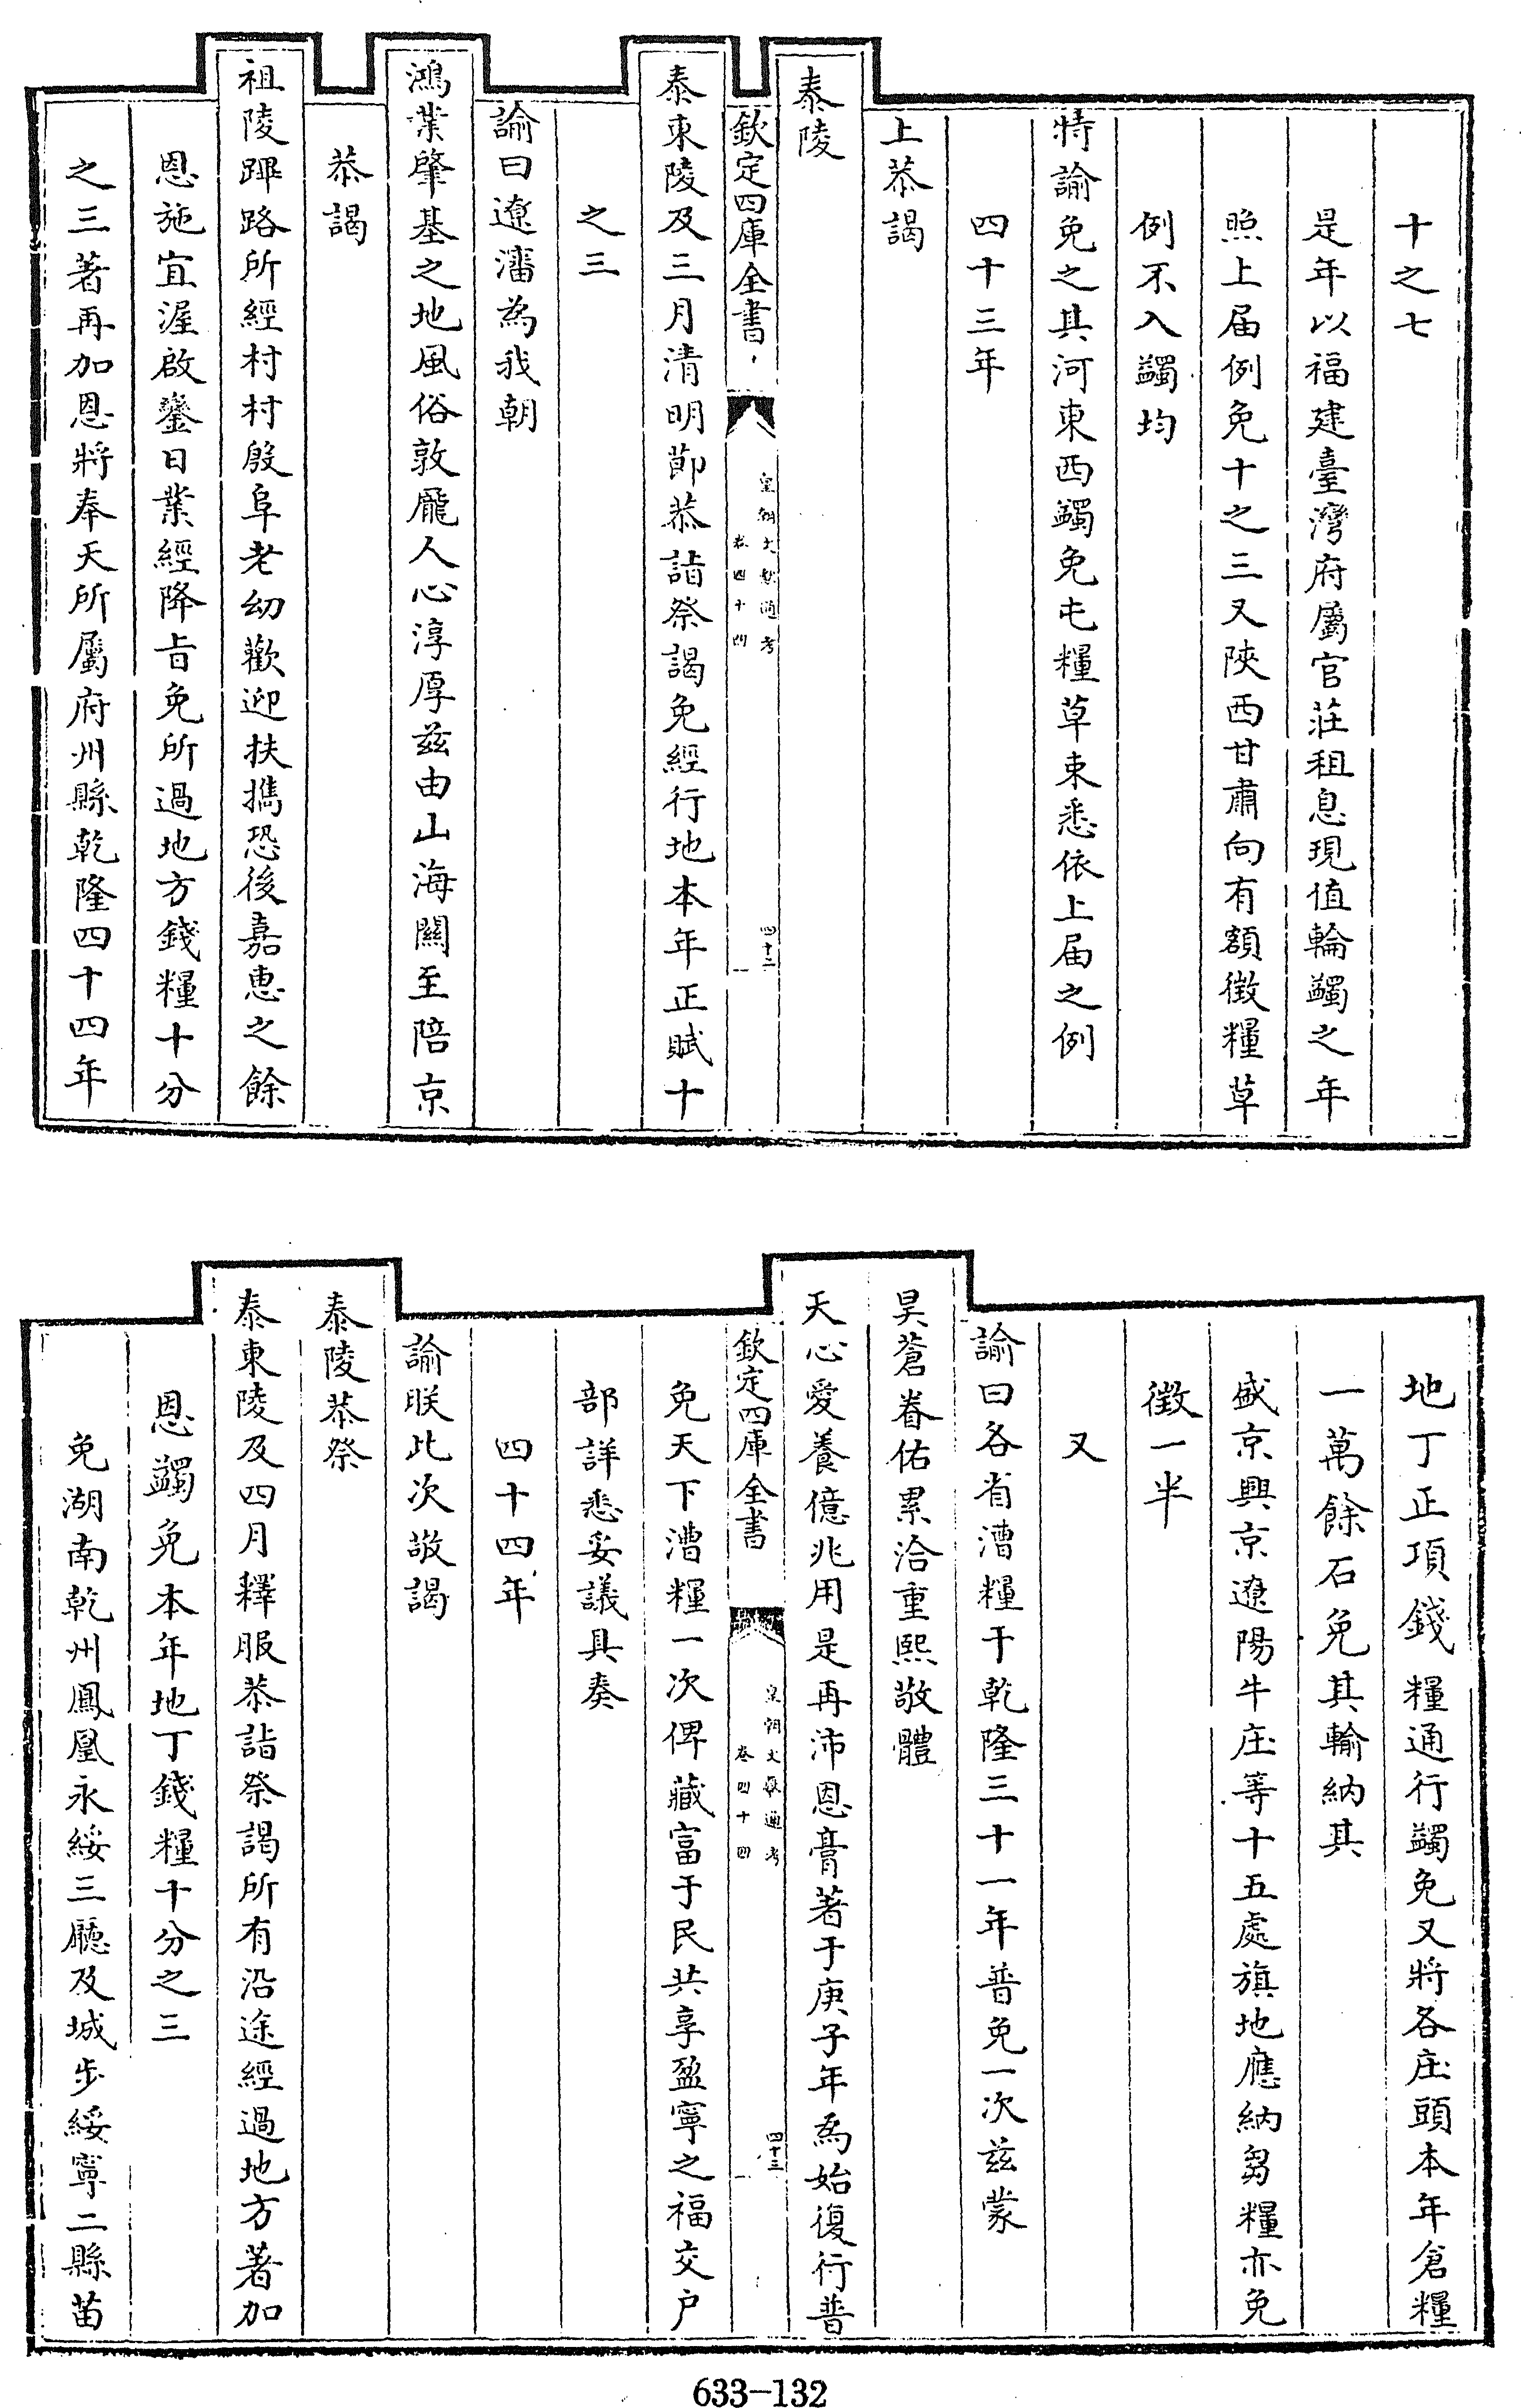 十之七
是年以福建臺灣府屬官莊租息現值輪蠲之年
照上届例免十之三又陝西甘肅向有額徴糧草
例不入蠲均
特諭免之其河東西蠲免屯糧草束悉依上届之例
四十三年
上恭謁
泰陵
欽定四庫全書
皇朝文獻通考
卷四十四
四十二
泰東陵及三月清明節恭詣祭謁免經行地本年正賦十
之三
諭曰遼瀋為我朝
鴻業肇基之地風俗敦龎人心淳厚兹由山海關至陪京
恭謁
祖陵蹕路所經村村殷阜老幼歡迎扶攜恐後嘉恵之餘
恩施宜渥啟鑾日業經降旨免所過地方錢糧十分
之三著再加恩將奉天所屬府州縣乾隆四十四年
地丁正項錢糧通行蠲免又將各庄頭本年倉糧
一萬餘石免其輸納其
盛京興京遼陽牛庄等十五處旗地應納芻糧亦免
徴一半
又
諭曰各省漕糧于乾隆三十一年普免一次兹蒙
昊蒼眷佑累洽重熙敬體
天心愛養億兆用是再沛恩膏著于庚子年為始復行普
欽定四庫全書
皇朝文獻通考
卷四十四
四十三
免天下漕糧一次俾藏富于民共享盈寧之福交户
部詳悉妥議具奏
四十四年
諭朕此次敬謁
泰陵恭祭
泰東陵及四月釋服恭詣祭謁所有沿途經過地方著加
恩蠲免本年地丁錢糧十分之三
免湖南乾州鳳凰永綏三廳及城步綏寧二縣苗
633-132